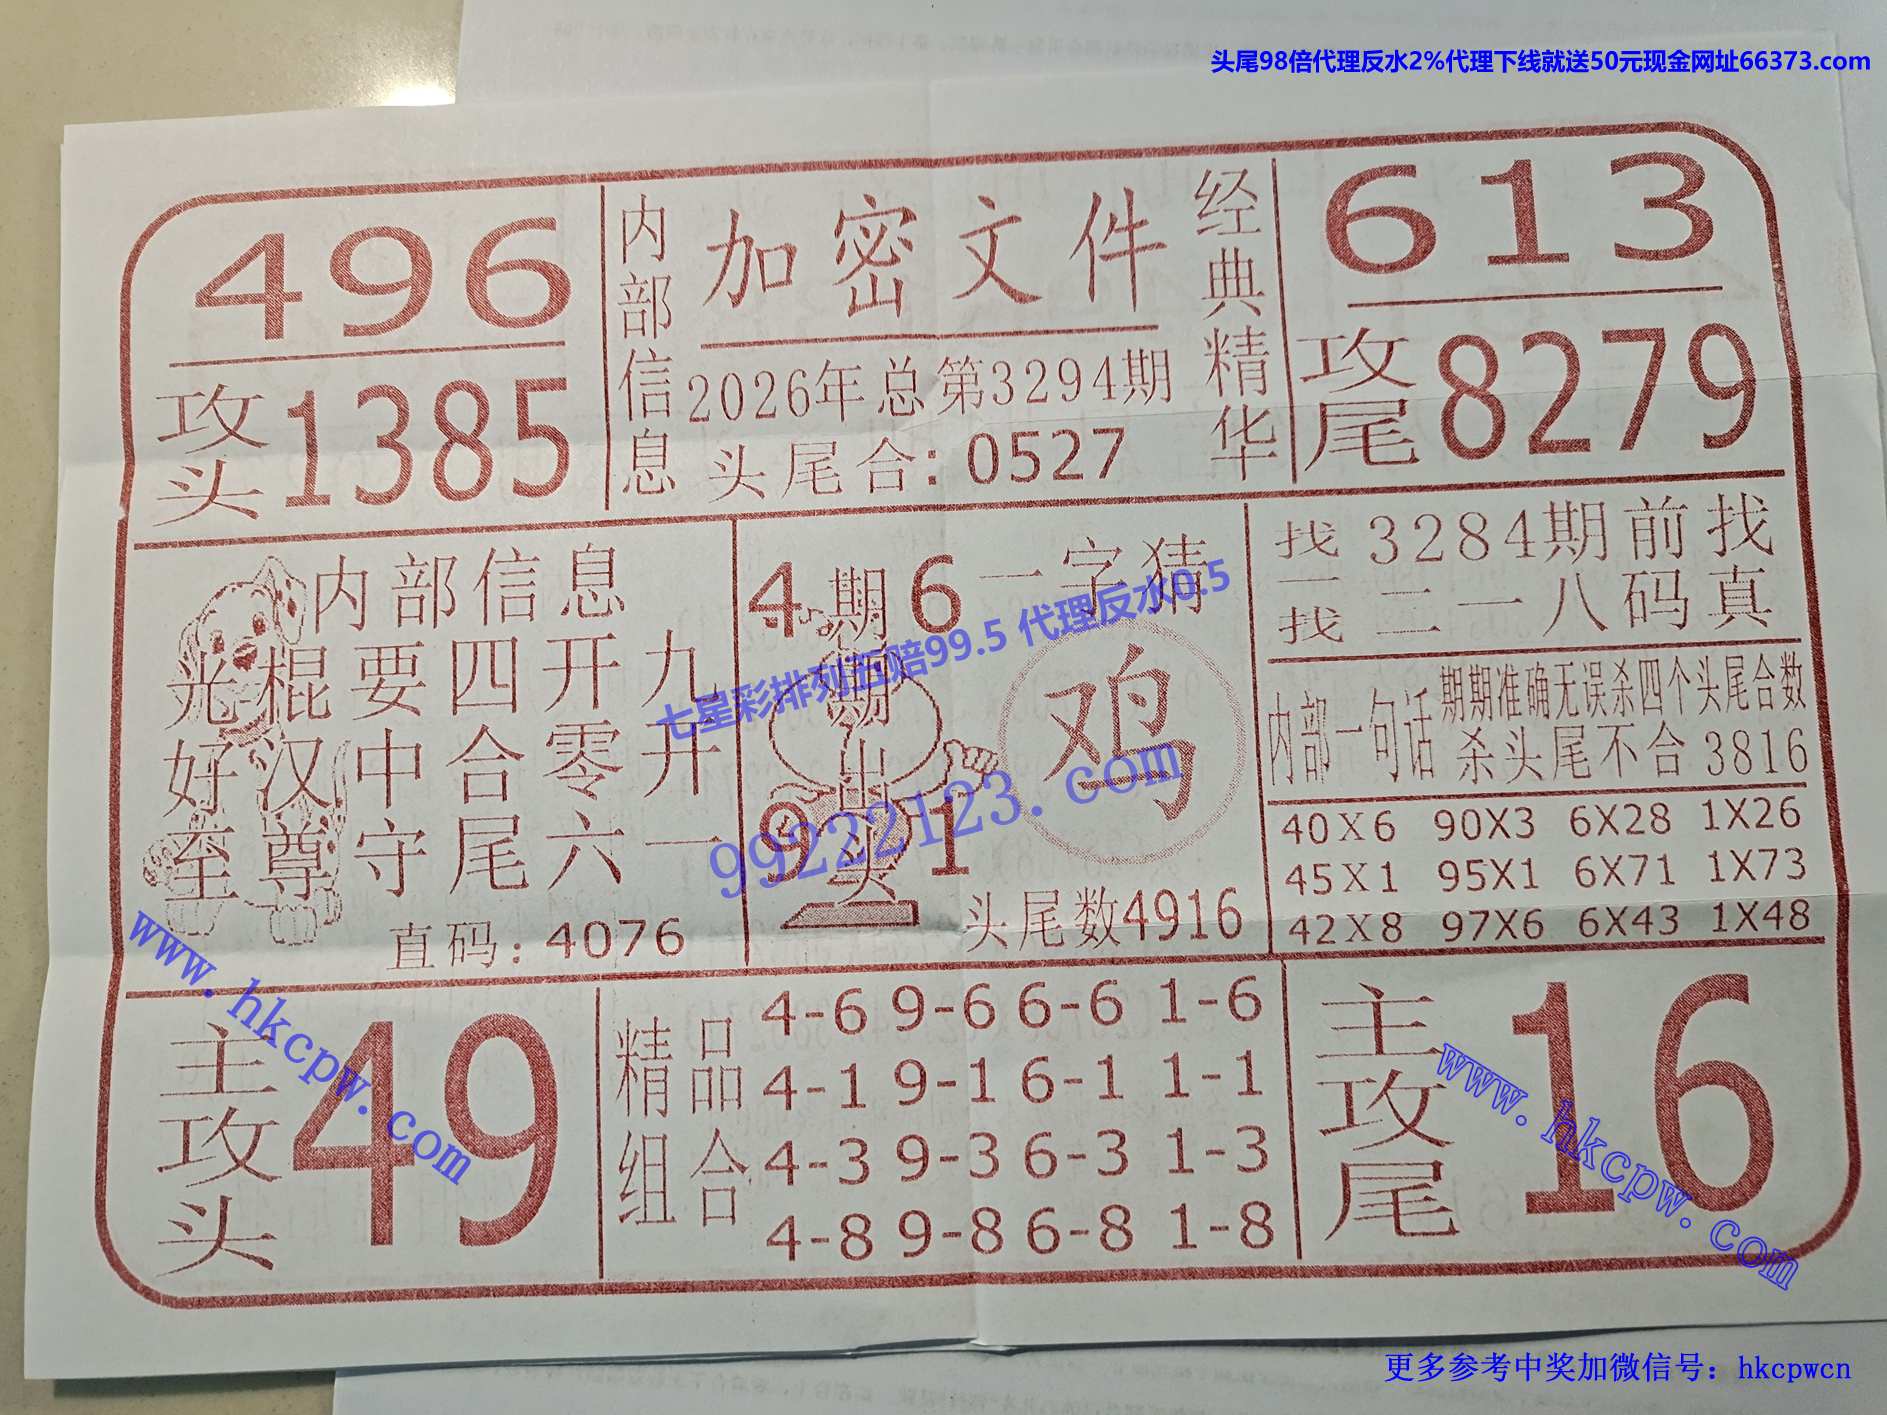 头尾98倍代理反水2%代理下线就送50元现金网址66373.com
496
攻头1385
内部信息
加密文件
2026年总第3294期
头尾合：0527
经典精华
613
攻尾8279
内部信息
光棍要四开九
好汉中合零开
至尊守尾六一
直码：4076
4 6
9 1
期期期出头
一字猜
鸡
头尾数4916
找一找
3284期前找
二一八码真
内部一句话
期期准确无误杀四个头尾合数
杀头尾不合3816
40X6 90X3 6X28 1X26
45X1 95X1 6X71 1X73
42X8 97X6 6X43 1X48
主攻头
49
精品组合
4-6 9-6 6-6 1-6
4-1 9-1 6-1 1-1
4-3 9-3 6-3 1-3
4-8 9-8 6-8 1-8
主攻尾
16
七星彩排列五赔99.5 代理反水0.5
99222123.com
www.hkcpw.com
www.hkcpw.com
更多参考中奖加微信号：hkcpwcn